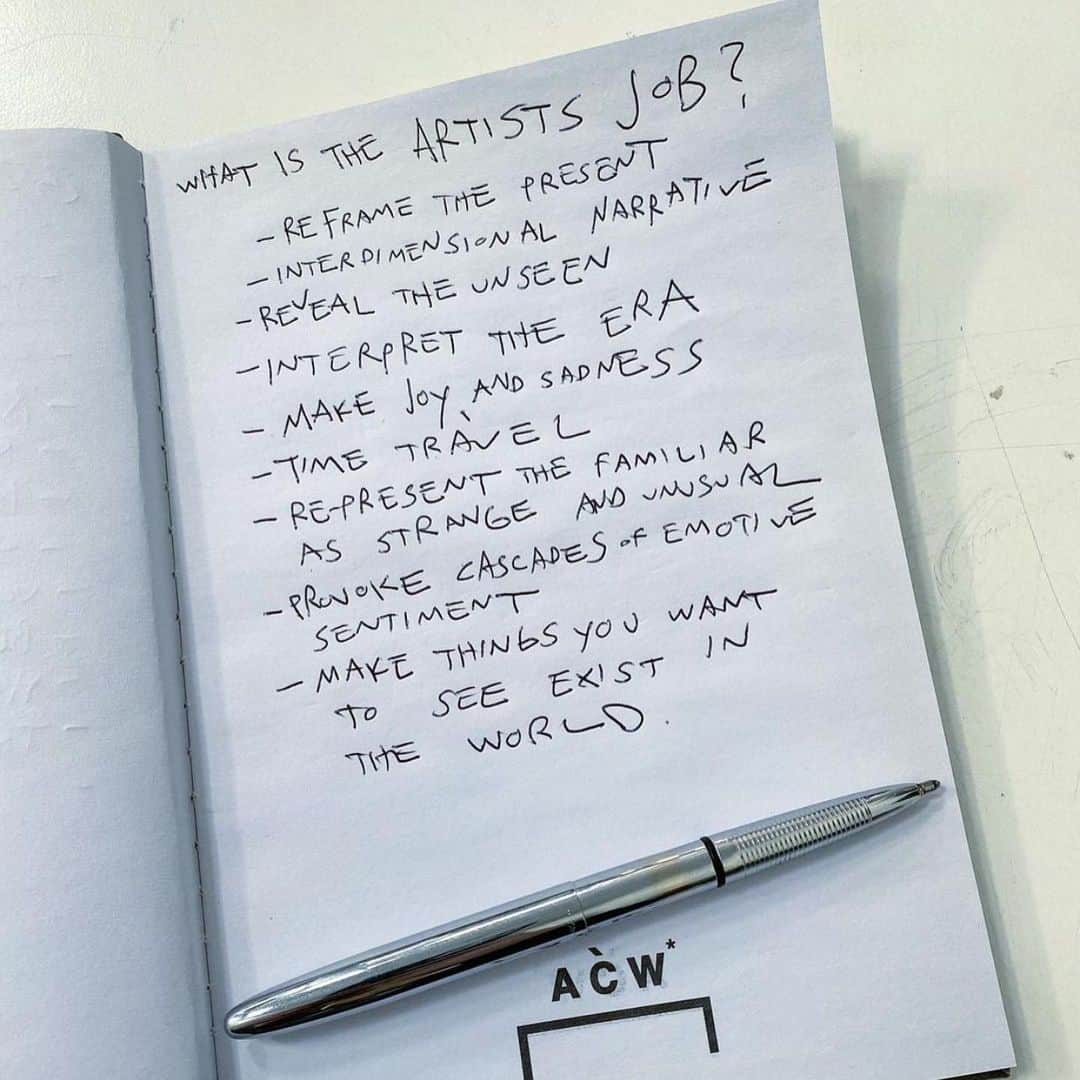 WHAT IS THE ARTISTS JOB?
- REFRAME THE PRESENT
- INTERDIMENSIONAL NARRATIVE
- REVEAL THE UNSEEN
- INTERPRET THE ERA
- MAKE JOY, AND SADNESS
- TIME TRAVEL
- RE-PRESENT THE FAMILIAR
AS STRANGE AND UNUSUAL
- PROVOKE CASCADES OF EMOTIVE
SENTIMENT
- MAKE THINGS YOU WANT
TO SEE EXIST IN
THE WORLD.
AC̀W*